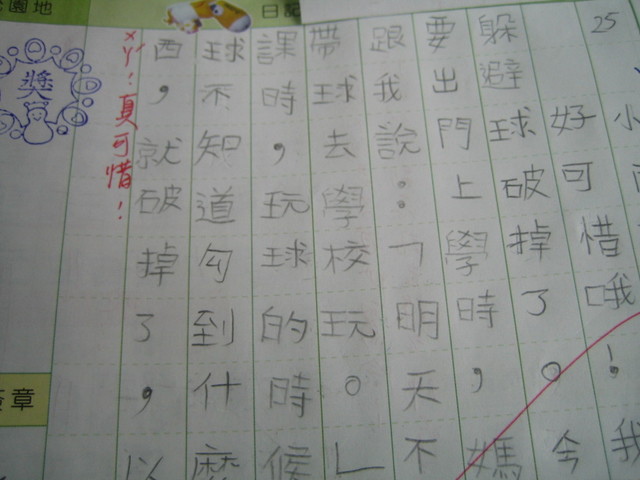 園地
日記
25
小
好可惜哦！我
躲避球破掉了。今
要出門上學時，媽
跟我說：「明天不
帶球去學校玩。」
課時，玩球的時候
球不知道勾到什麼
西，就破掉了，以
ㄨㄚ！真可惜！
獎
章